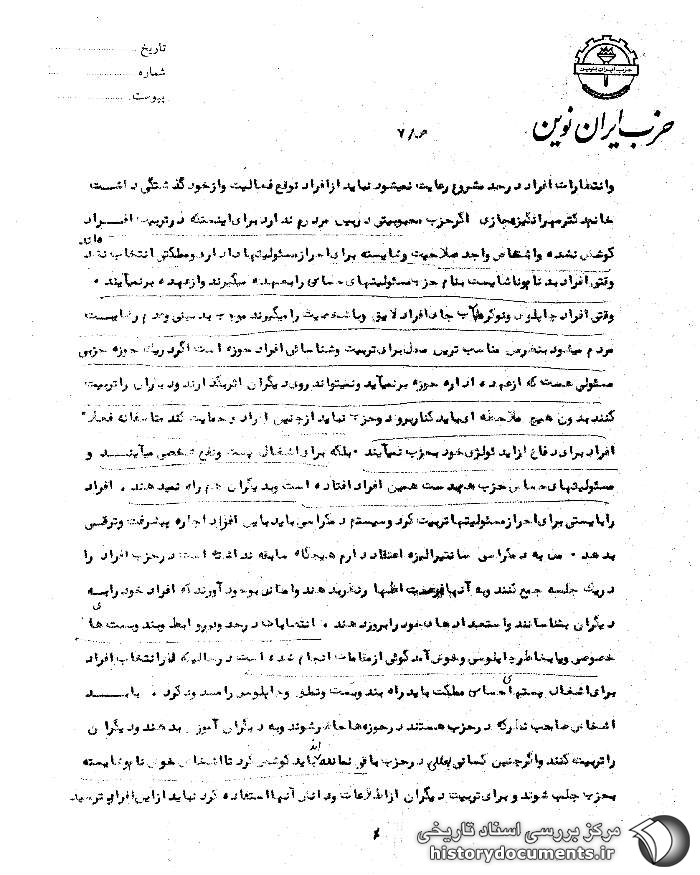 تاریخ
شماره
پیوست
حزب ایران نوین
حزب ایران نوین
۷/۰۶
وانتظارات افراد در حد مشروع رعایت نمیشود نباید از افراد توقع فعالیت و از خود گذشتگی داشت
خانم دکتر مهرانگیز مجازی اگر حزب محبوبیتی در بین مردم ندارد برای اینستکه در تربیت افراد
کوشش نشده و اشخاص واجد صلاحیت و شایسته برای احراز مسئولیتها در ادارات مملکتی انتخاب نشده‌اند
وقتی افراد بد نام و ناشایست بنام حزب مسئولیتهای حساس را بعهده میگیرند و از عهده برنمیآیند ۰
وقتی افراد چاپلوس و نوکرمآب جای افراد لایق و باشخصیت را میگیرند موجب بدبینی و عدم رضایت
مردم میشود بنظر من مناسب ترین محل برای تربیت و شناسائی افراد حوزه است اگر در یک حوزه حزبی
مسئولی هست که از عهده اداره حوزه برنمیآید و نمیتواند روی دیگران اثر بگذارند و دیگران را تربیت
کنند بدون هیچ ملاحظه ای باید کنار برود و حزب نباید از چنین افراد حمایت کند متاسفانه فعلا
افراد برای دفاع از اید ئولژی خود بحزب نمیآیند ۰ بلکه برای اشغال پست و نفع شخصی میآیند و
مسئولیتهای حساس حزب هم بدست همین افراد افتاده است و بدیگران هم راه نمیدهند ۰ افراد
را بایستی برای احراز مسئولیتها تربیت کرد و سیستم دمکراسی باید باین افراد اجازه پیشرفت و ترقی
بدهد ۰ من به دمکراسی سانترالیزه اعتقاد دارم هیچگاه سابقه نداشته است در حزب افراد را
در یک جلسه جمع کنند و به آنها فرصت اظهار نظر بدهند و امکانی بوجود آورند که افراد خود را به
دیگران بشناسانند و استعدادهای خود را بروز دهند ۰ انتصابات در حدود روابط و بند و بست های
خصوصی و یا بخاطر چاپلوسی و خوش آمد گوئی از مقامات انجام شده است در حالیکه در انتخاب افراد
برای اشغال پستهای حساس مملکت باید راه بند و بست و تملق و چاپلوسی را مسدود کرد ۰ باید
اشخاص صاحب نظر که در حزب هستند در حوزه‌ها حاضر شوند و به دیگران آموزش بدهند و دیگران
را تربیت کنند و اگر چنین کسانی در حزب باقی نمانده‌اند باید کوشش کرد تا اشخاص خوش نام و شایسته
بحزب جلب شوند و برای تربیت دیگران از اطلاعات و دانش آنها استفاده کرد نباید از این افراد ترسید
مرکز بررسی اسناد تاریخی
historydocuments.ir